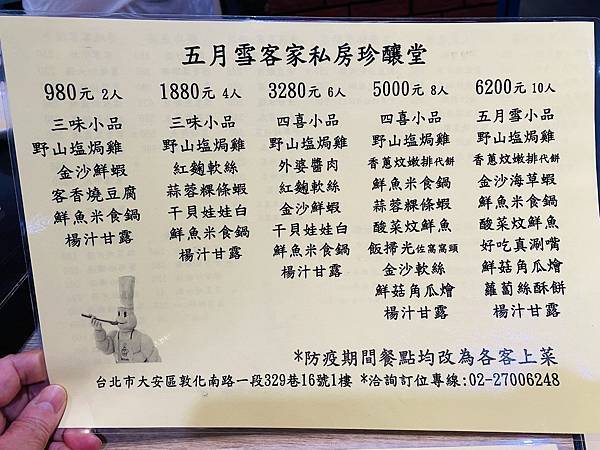 五月雪客家私房珍釀堂
980元 2人
三味小品
野山塩焗雞
金沙鮮蝦
客香燒豆腐
鮮魚米食鍋
楊汁甘露
1880元 4人
三味小品
野山塩焗雞
紅麴軟絲
蒜蓉粿條蝦
干貝娃娃白
鮮魚米食鍋
楊汁甘露
3280元 6人
四喜小品
野山塩焗雞
外婆醬肉
紅麴軟絲
金沙鮮蝦
干貝娃娃白
鮮魚米食鍋
楊汁甘露
5000元 8人
四喜小品
野山塩焗雞
香蔥炆嫩排代餅
鮮魚米食鍋
蒜蓉粿條蝦
酸菜炆鮮魚
飯掃光佐窩窩頭
金沙軟絲
鮮菇角瓜燴
楊汁甘露
6200元 10人
五月雪小品
野山塩焗雞
香蔥炆嫩排代餅
金沙海草蝦
鮮魚米食鍋
酸菜炆鮮魚
好吃真涮嘴
鮮菇角瓜燴
蘿蔔絲酥餅
楊汁甘露
*防疫期間餐點均改為各客上菜
台北市大安區敦化南路一段329巷16號1樓 *洽詢訂位專線:02-27006248